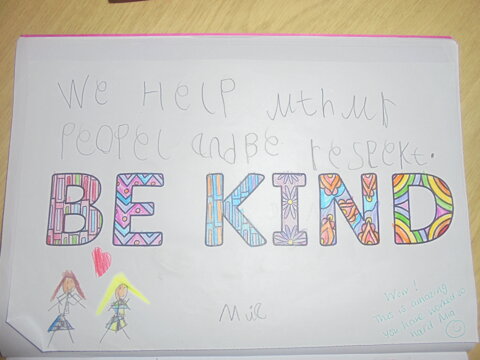 We HELP uthur
PeoPel and Be respekt.
BE KIND
Mia
Wow!
This is amazing
you have worked so
hard Mia